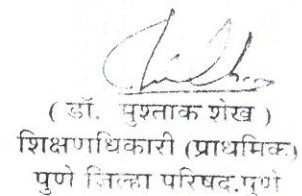 ( डॉ. मुश्ताक शेख )
शिक्षणाधिकारी (प्राथमिक)
पुणे जिल्हा परिषद,पुणे